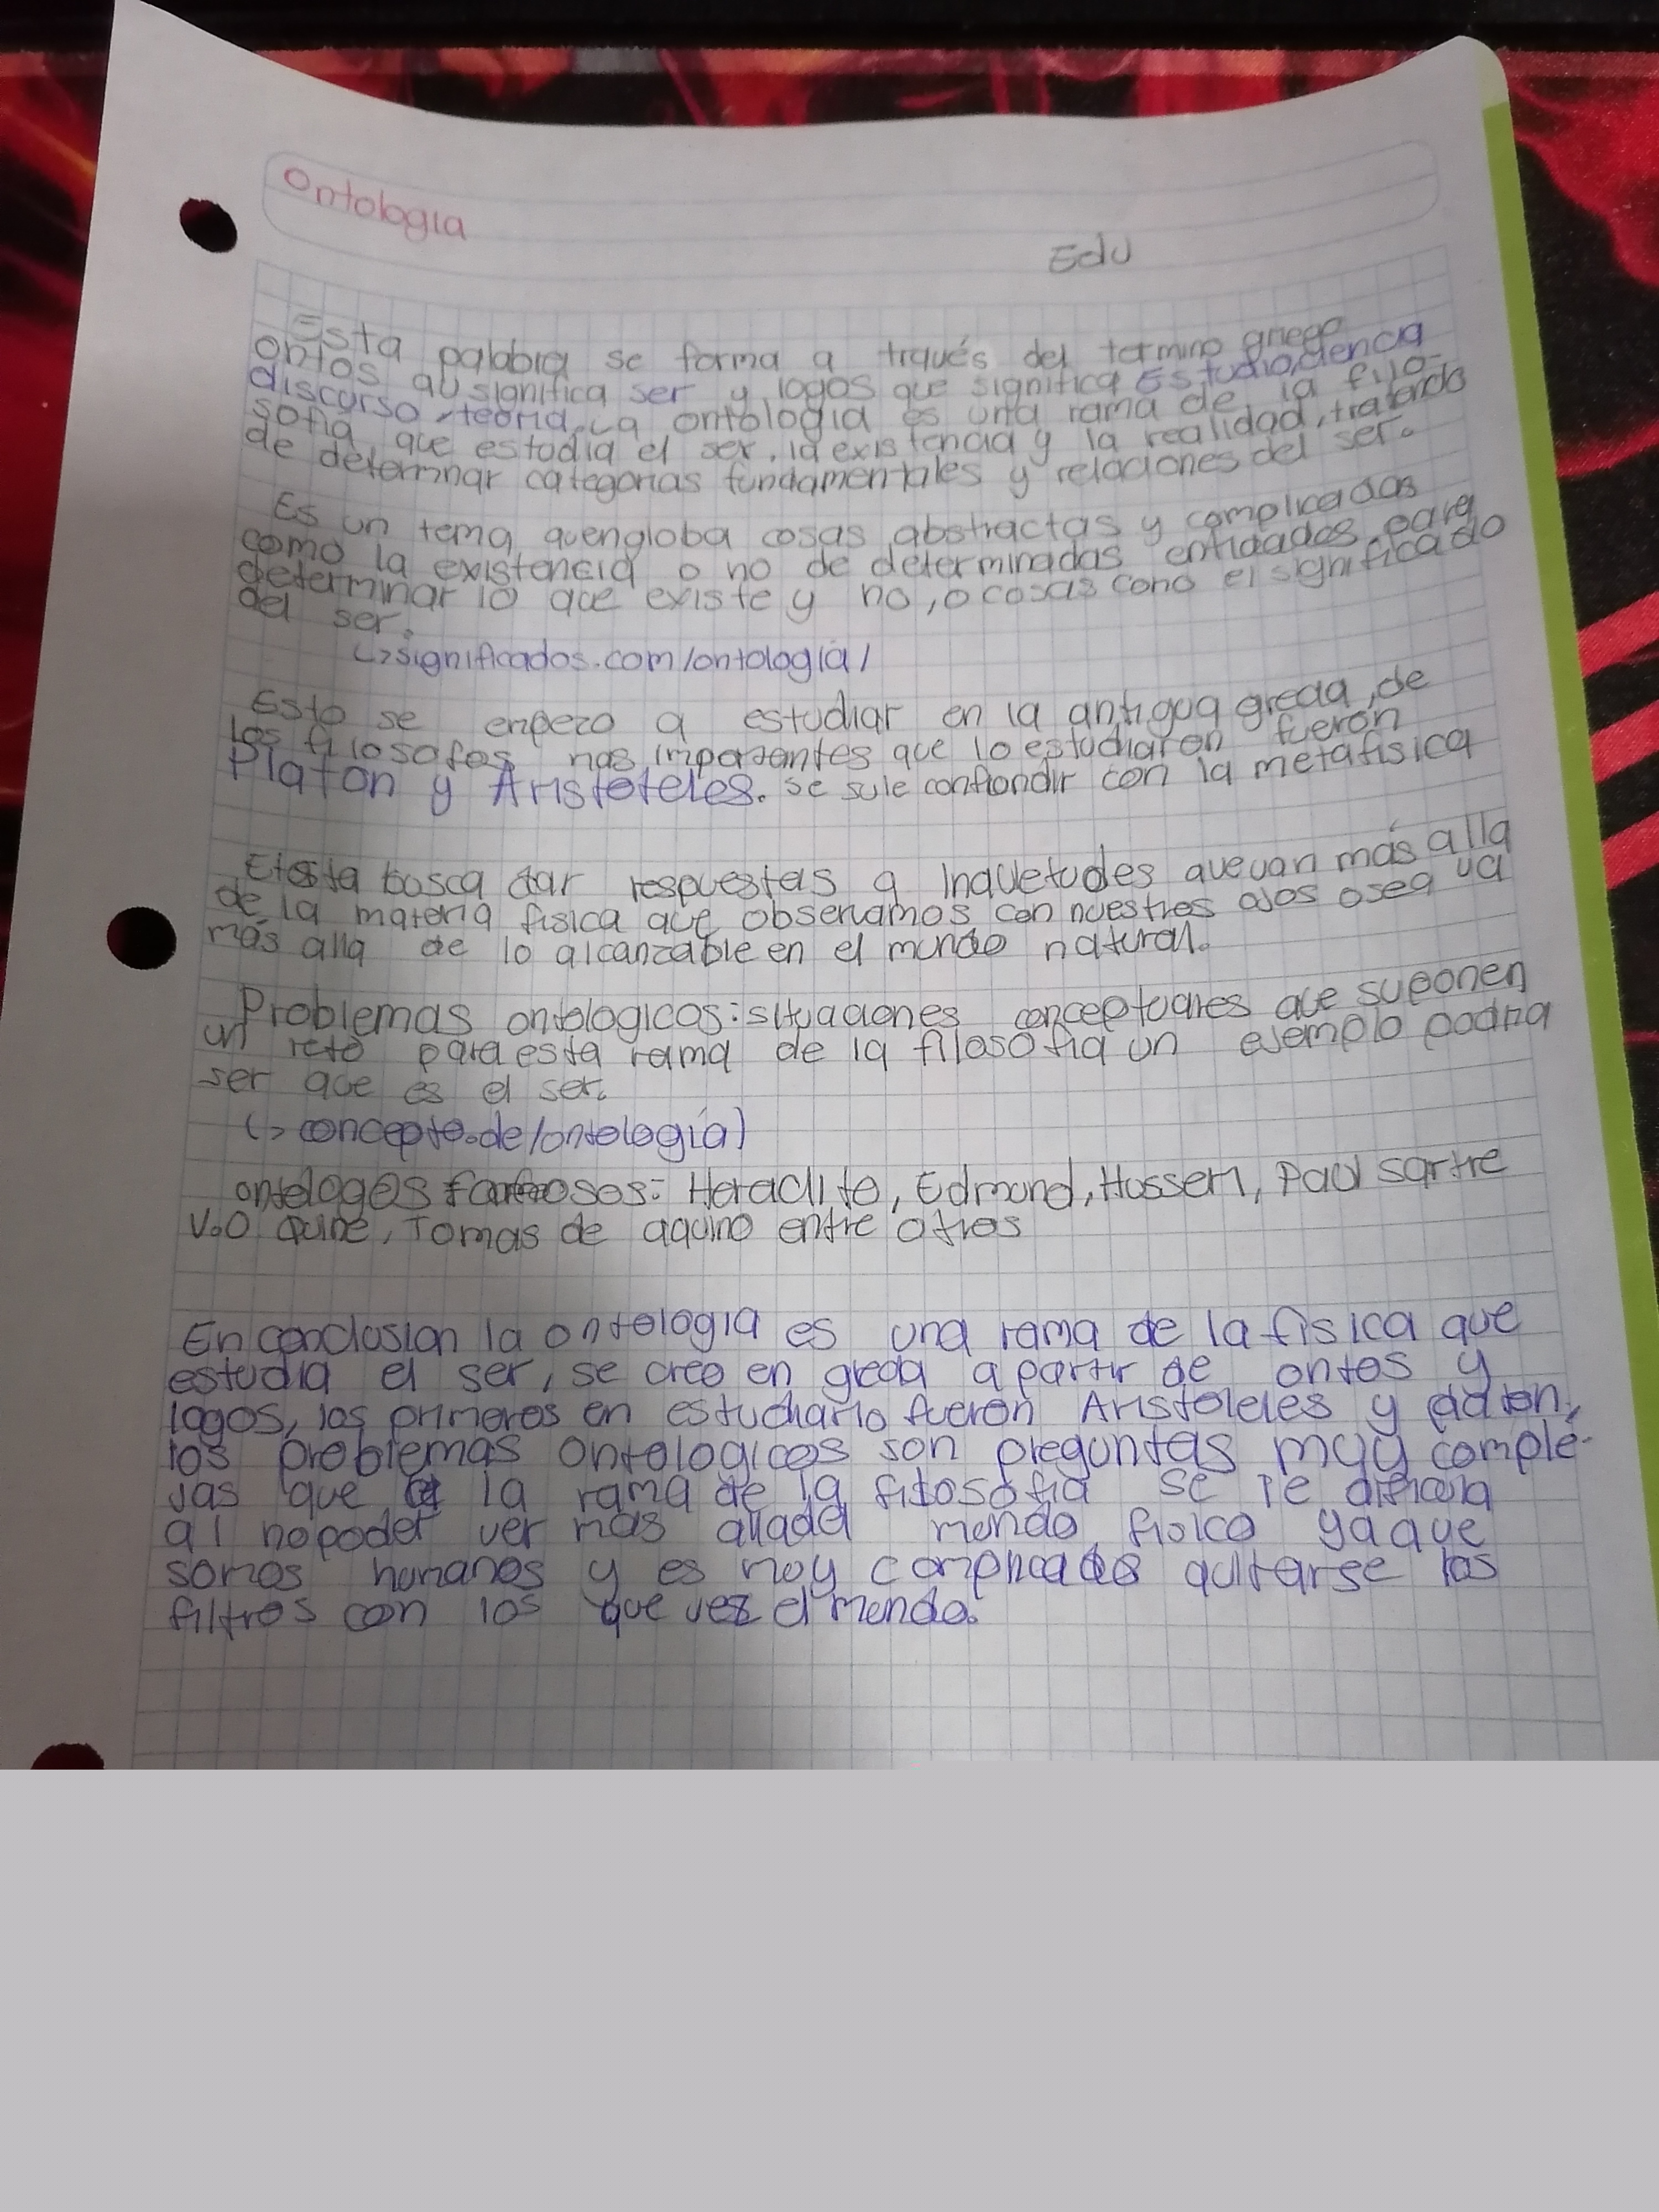 Ontologia
Edu
Esta palabra se forma a través del termino griego
ontos qu significa ser y logos que significa Estudio, ciencia
discurso, teoria, La ontologia es una rama de la filo-
sofia que estudia el ser, la existencia y la realidad, tratando
de determinar categorias fundamentales y relaciones del ser.
Es un tema quengloba cosas abstractas y complicadas
como la existencia o no de determinadas entidades para
determinar lo que existe y no, o cosas como el significado
del ser.
↳significados.com/ontología/
Esto se enpezo a estudiar en la antigua grecia, de
los filosofos mas importantes que lo estudiaron fueron
Platon y Aristoteles. se sule confiondir con la metafisica
Etosta busca dar respuestas a inquetudes que van más alla
de la materia fisica que observamos con nuestros ojos osea va
más alla de lo alcanzable en el mundo natural.
Problemas ontologicos: situaciones conceptuales que suponen
un reto para esta rama de la filosofia un ejemplo podria
ser que es el ser.
(> concepto.de/ontología)
ontologos famosos: Heraclito, Edmond, Hosserl, Paul sartre
V.O Quine, Tomas de aquino entre otros
En conclusion la ontologia es una rama de la fisica que
estudia el ser, se creo en grecia a partir de ontos y
logos, los primeros en estudiarlo fueron Aristoteles y platon,
los problemas ontologicos son preguntas muy comple-
jas que a la rama de la filosofia se le dificulta
al no poder ver mas alladel mondo fisico ya que
somos humanos y es moy complicado quitarse los
filtros con los que ves el mondo.